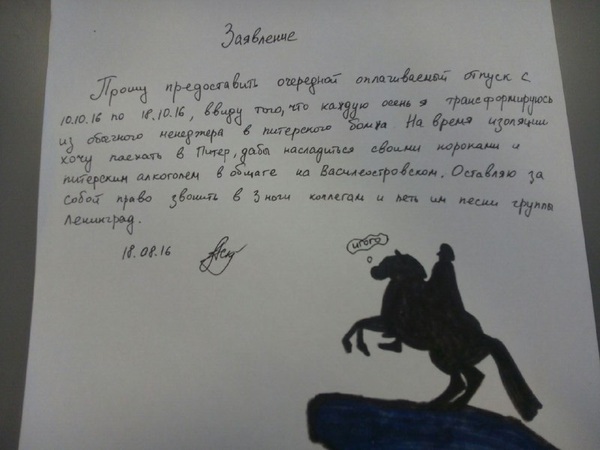 Заявление
Прошу предоставить очередной оплачиваемый отпуск с
10.10.16 по 18.10.16, ввиду того, что каждую осень я трансформируюсь
из обычного менеджера в питерского бомжа. На время изоляции
хочу поехать в Питер, дабы насладиться своими пороками и
питерским алкоголем в общаге на Василеостровском. Оставляю за
собой право звонить в 3 ночи коллегам и петь им песни группы
Ленинград.
18.08.16
ИГОГО